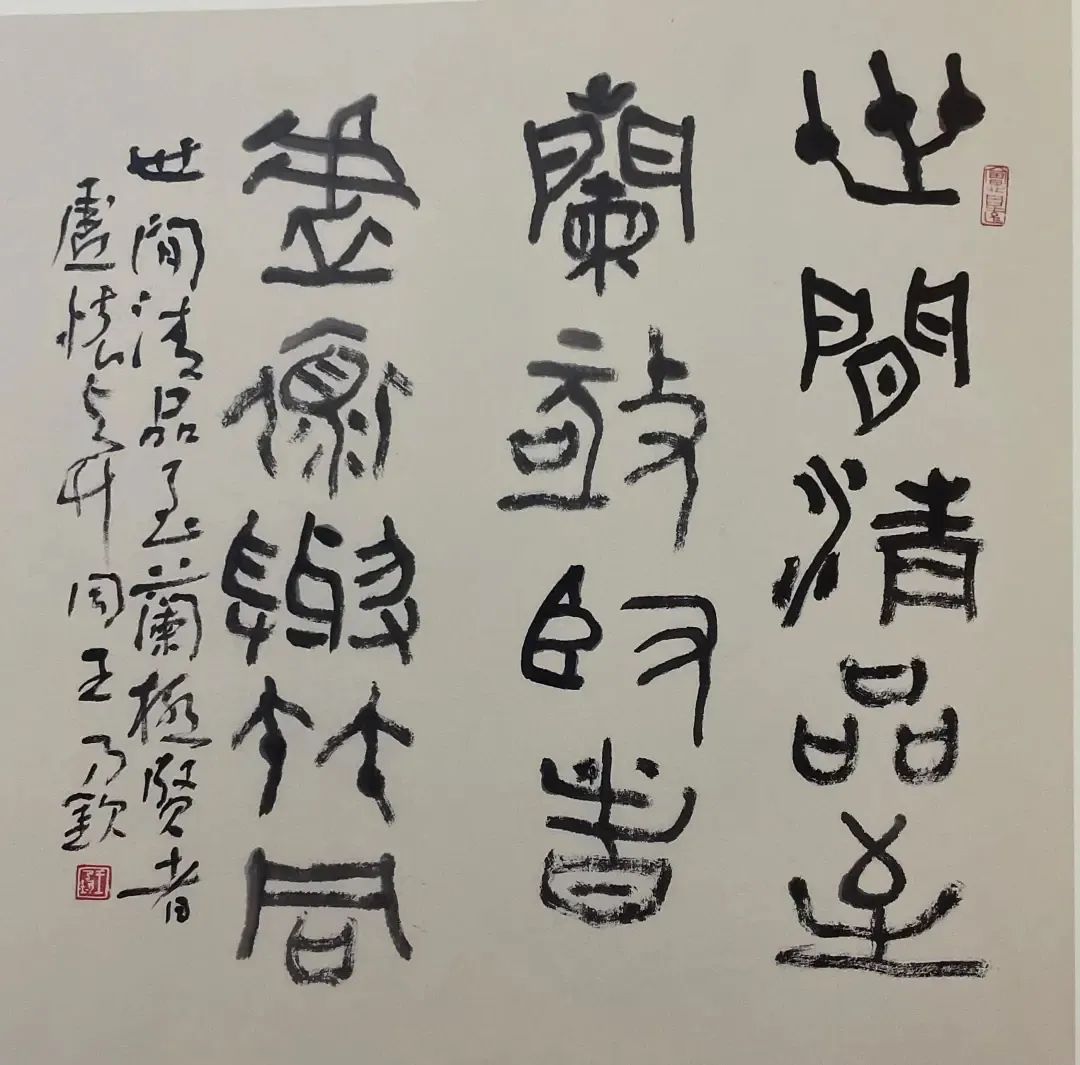 世間清品至
蘭極賢者
虛懷與竹同
世間清品至蘭極賢者
虛懷与竹同王乃欽